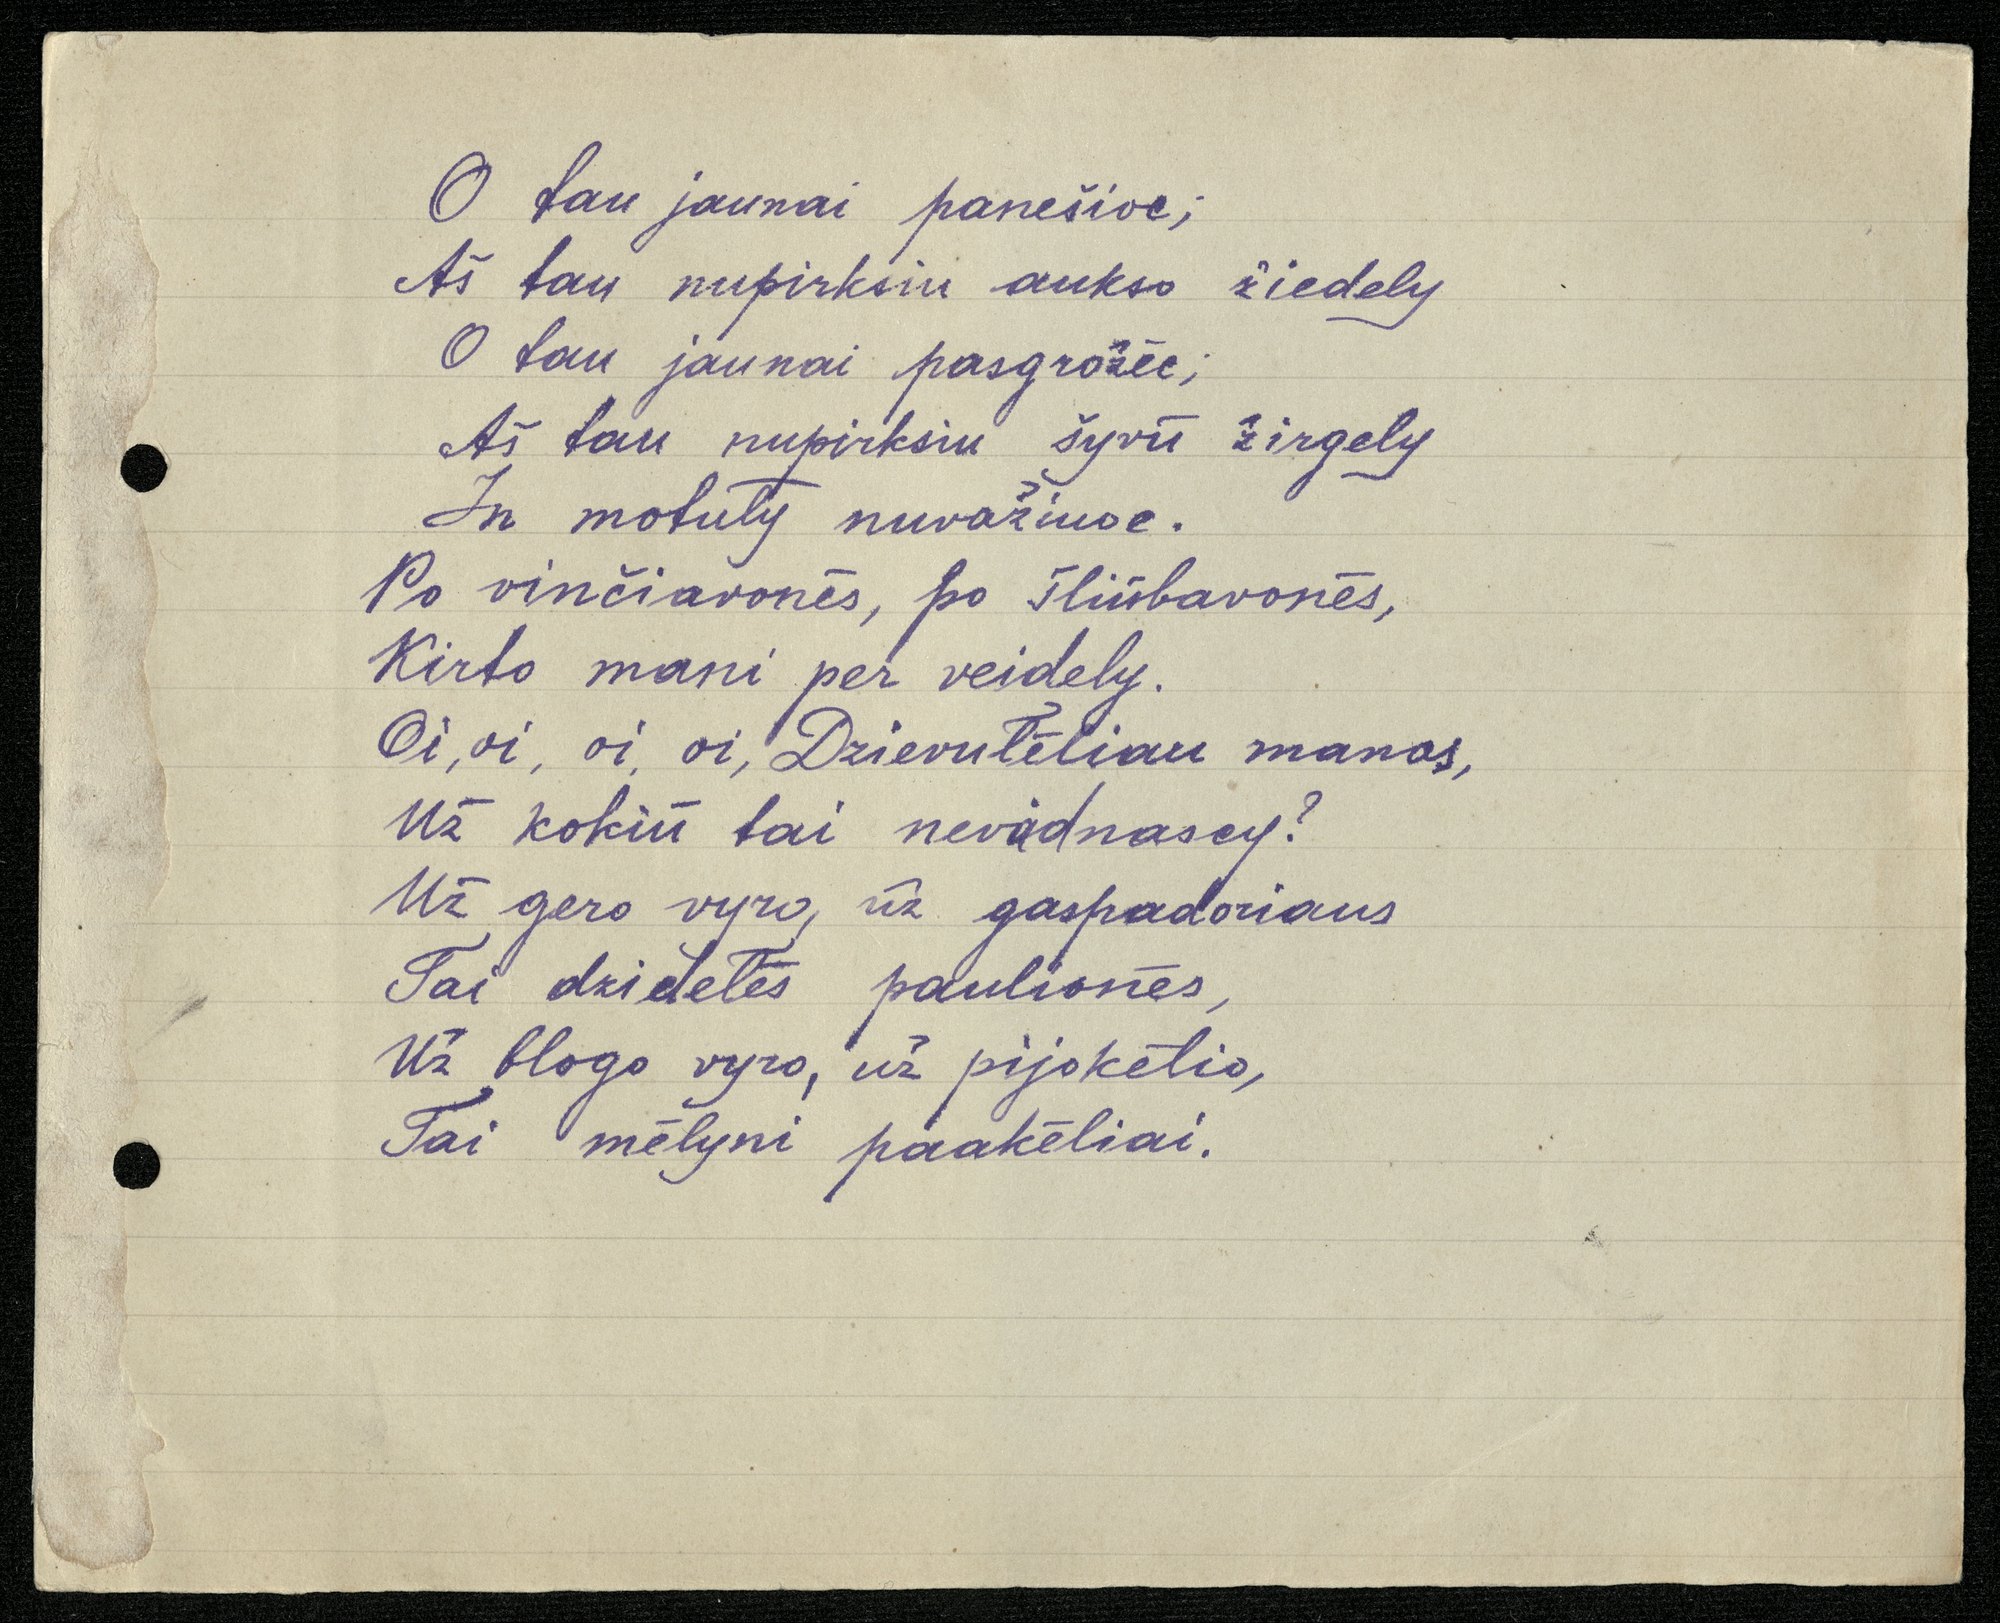 O tau jaunai panešioc;
Aš tau nupirksiu aukso žiedely
O tau jaunai pasgrožėc;
Aš tau nupirksiu šyvū žirgely
In motutį nuvažiuoc.
Po vinčiavonės, po šliūbavonės,
Kirto mani per veidely.
Oi, oi, oi, oi, Dzievutėliau manas,
Už kokiū tai nevidnascy?
Už gero vyro, už gaspadoriaus
Tai dzidelės paulionės,
Už blogo vyro, už pijokėlio,
Tai mėlyni paakėliai.